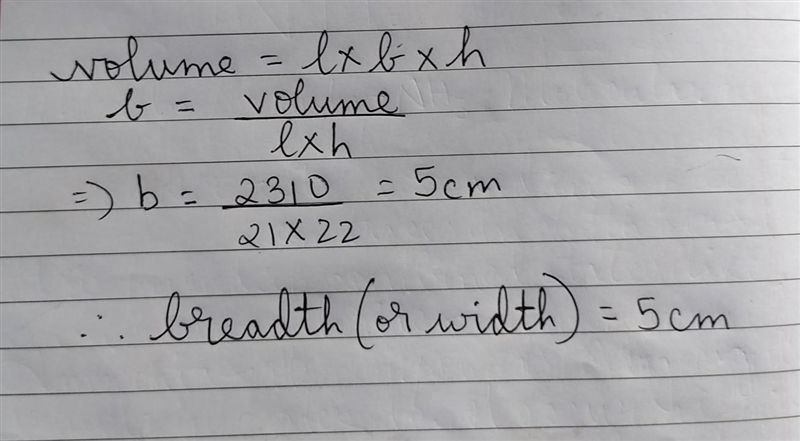 volume = l × b × h
b = volume / l × h
⇒ b = 2310 / 21 × 22 = 5cm
∴ breadth (or width) = 5cm